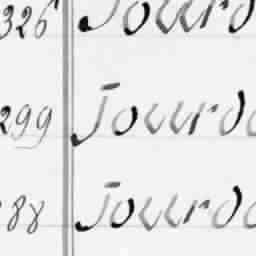 326 Jourda
299 Jourda
88 Jourda